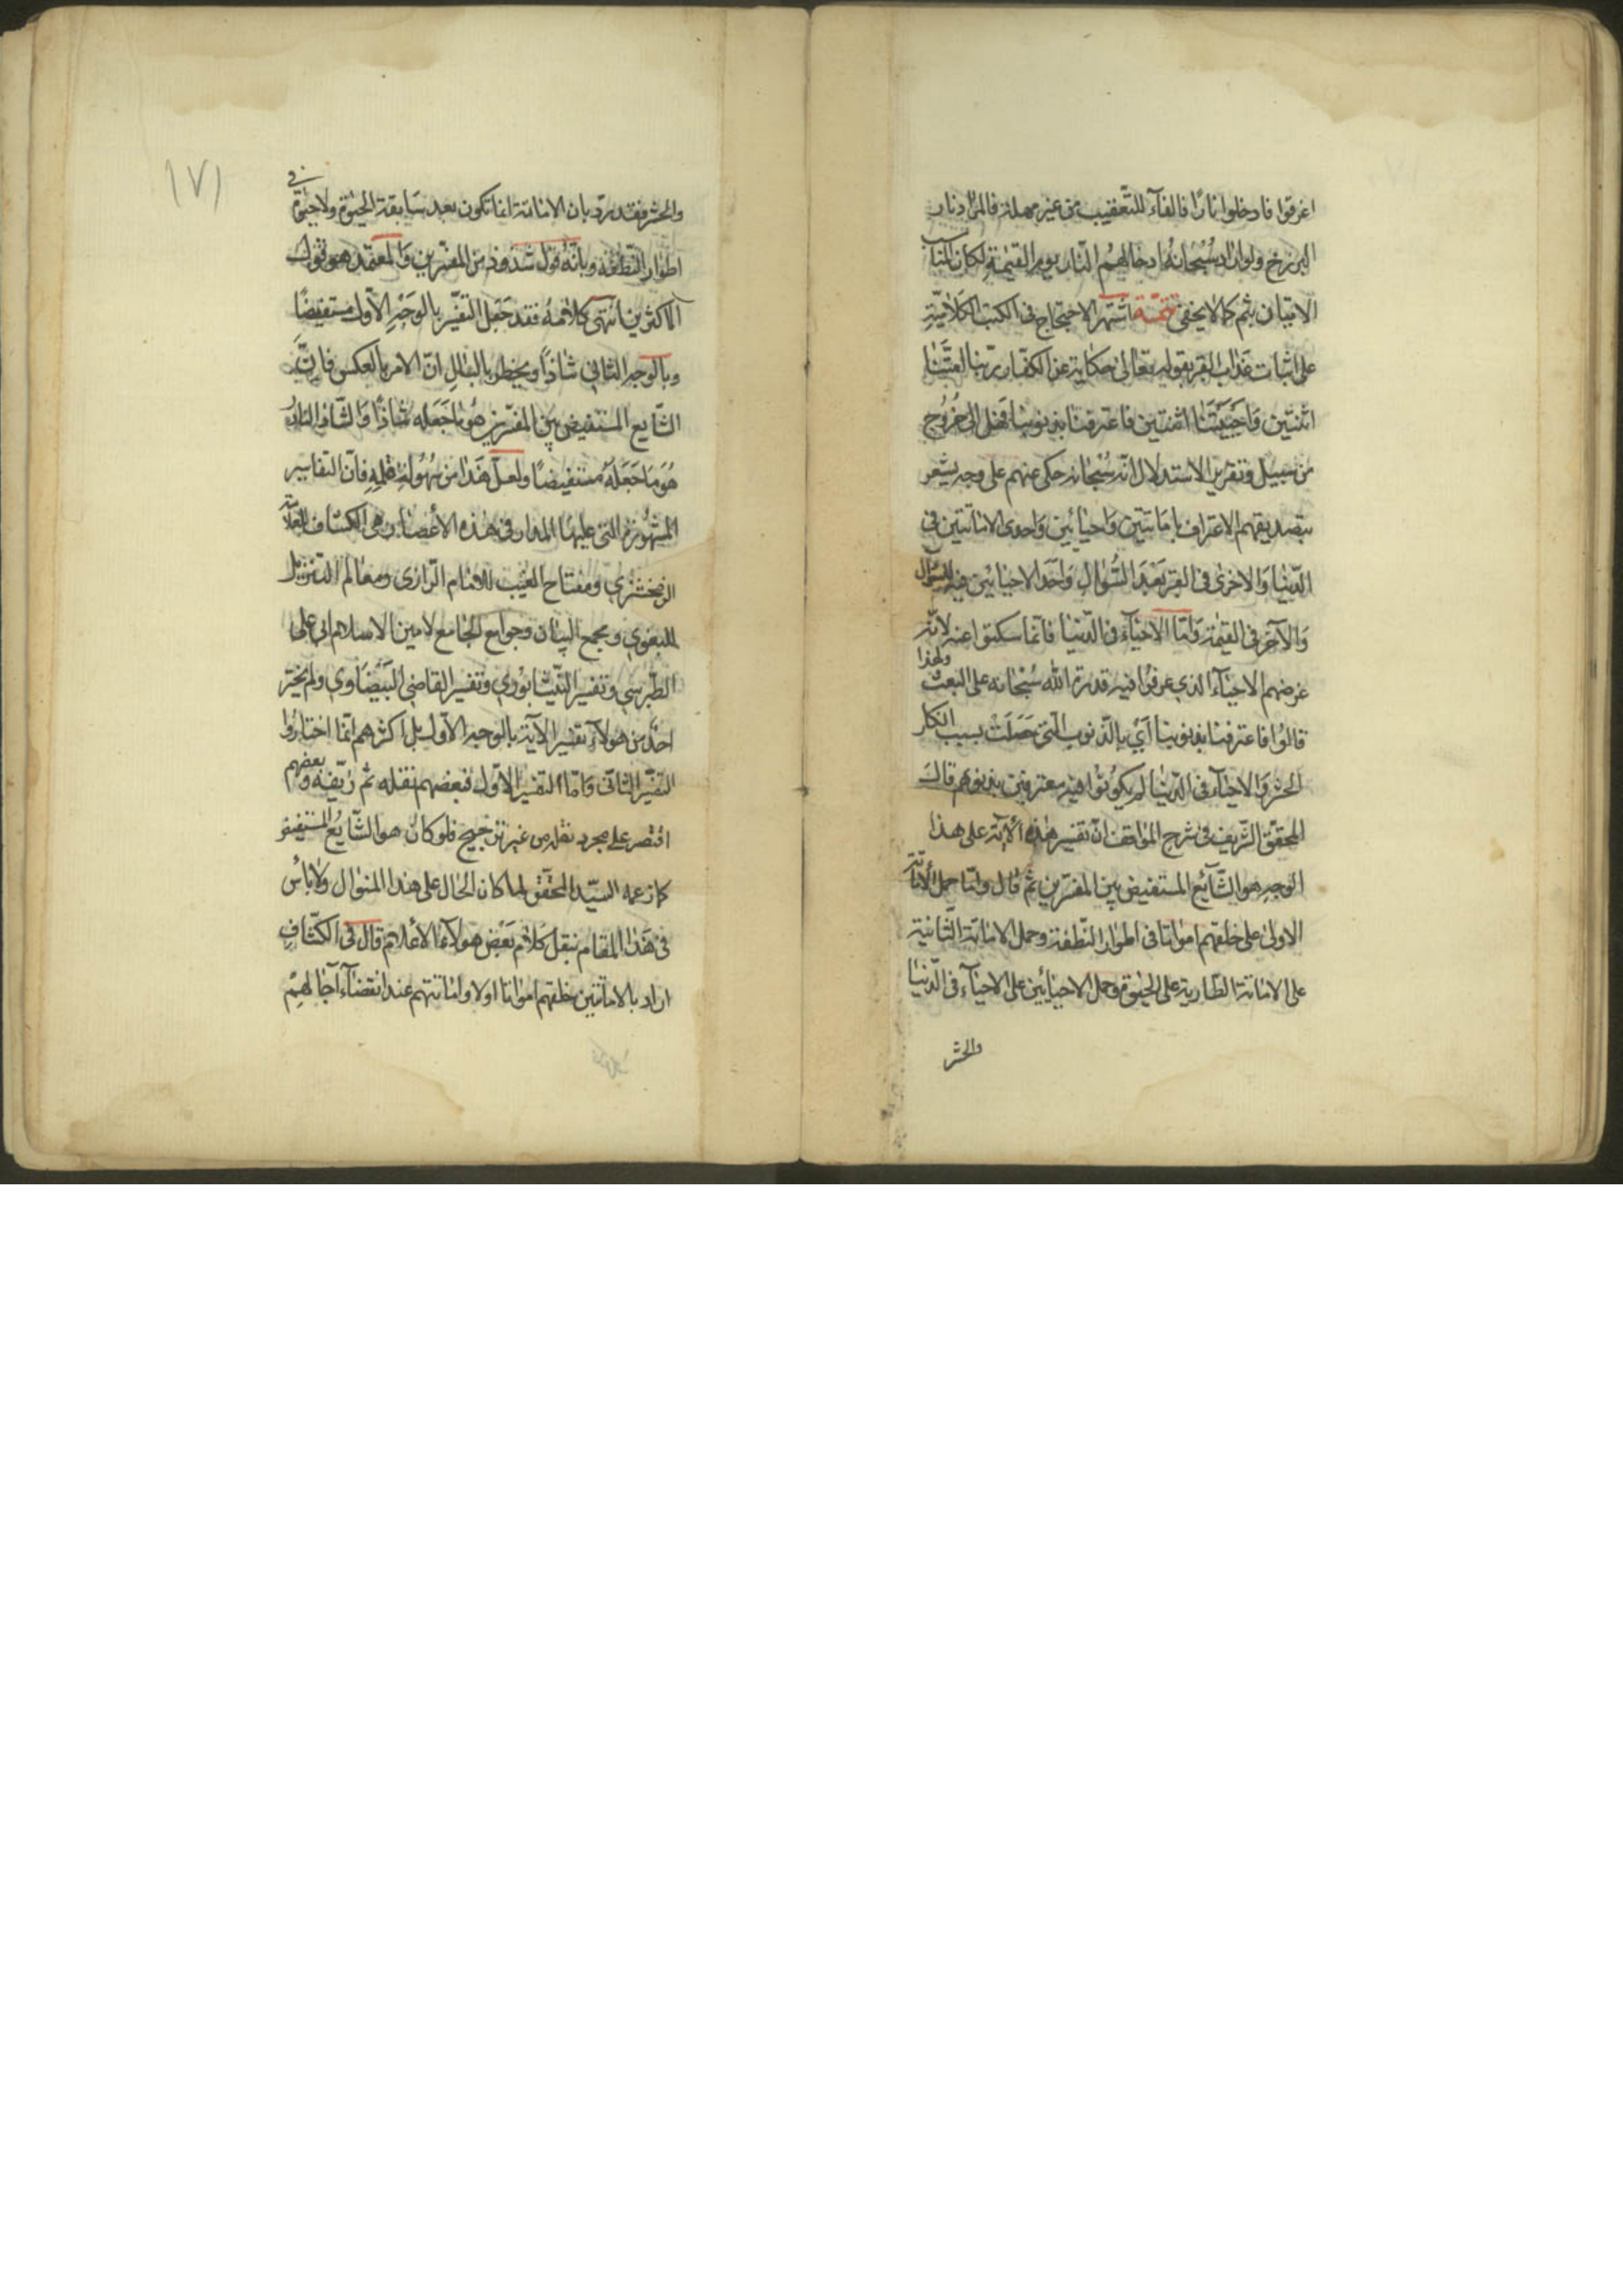 اغرقوا فادخلوا نارًا فالفآء للتّعقيب من غير مهلة فالمراد نار
البرزخ ولو اراد سُبْحانهُ ادخالهمُ النّار يوم القيمةِ لكان المناسب
الاتيان بثم كما لا يخفى تتمّــة اشتهر الاحتجاج فى الكتب الكَلاميّةِ
على اثبات عَذاب القبر بقوله تعالى حكاية عن الكفّار ربّنا امتّنا
اثنتين وَاحييتَنا اثنتين فاعترفنا بذنوبنا فهل الى خُرُوج
من سبيل وتقرير الاستدلال انّه سُبْحانه حكى عنهم على وجه يشعر
بتصديقهم الاعتراف باماتتين وَاحيائين وَاحدى الاماتتين فى
الدّنيا وَالاخرى فى القبر بَعْدَ السُّؤالِ وَاحَد الاحيائين فيه للسّؤال
وَالآخر فى القيمة وَامّا الاحيآء فى الدّنيا فانّما سكتوا عنه لانّ
غرضهم الاحيآء الذي عرفوا فيه قدرة اللّٰه سُبْحانه على البعث ولهذا
قالوُا فاعترفنا بذنوبنا أَيْ بالذّنوب التّي حَصَلَتْ بسبب انكار
الحشر وَالاحيآء فى الدّنيٰا لم يكوُنوُا فيه معترفين بذنوبهم قالَ
المحقّق الشّريف فى شرح المواقف انّ تفسير هٰذه الآية على هٰذا
الوَجهِ هو الشّآيع المستفيض بين المفسّرين ثم قال وامّا حمل الاماتة
الاولىٰ على خلقهم امواتا فى اطوار النّطفة وحمل الاماتة الثّانية
على الاماتة الطّارية على الحيٰوة وحمل الاحيائين على الاحيآء فى الدّنيا
والحشر
١٧١
والحشر فقد ردّ بان الاماتة انما تكون بعد سَابقة الحيٰوة ولا حيٰوة فى
اطوار النّطفة وبانّهُ قول شذوذ من المفسّرين وَالمعتمد هو قول
الاكثرين انتهى كلامُهُ فقد جَعَل التفسير بالوَجْهِ الاوّل مستفيضًا
وبالوجه الثاني شاذاً ويخطر بالبٰالِ انّ الامر بالعكس فاِنّ
الشّايع المستفيض بين المفسّرين هُو مٰا جَعَله شٰاذًا وَالشّاذ النادُ
هُوَ مَا جَعَلَهُ مستفيضًا ولعلّ هَذا من سُهُولة قلمِهِ فانّ التفاسير
المشهُورة التى عليهَا المدار فى هٰذه الأعصار هى الكشّاف للعلّامة
الزمخشري ومفتاح الغَيْب للامٰام الرّازى ومعالم التنزيل
للبغوي ومجمع البيان وجوامع الجامع لامين الاسلام ابى على
الطّبرسي وتفسير النّيشابوُري وتفسير القاضي البَيْضَاوي ولم يختر
احدٌ من هؤلآءِ تفسير الآية بالوجه الاوّل بل اكثرهم انّما اختارُوا
التفسير الثاني وَامّا التفسير الاوّل فبعضهم نقله ثم زيّفه وبعضهم
اقتصر على مجرد نقله من غير ترجيح فلو كان هو الشّايعُ المستفيض
كما زعمه السيّد المحقّق لما كان الحٰال على هٰذا المنوٰال ولا بأس
فى هَذا المقام بنقل كلام بَعْض هؤلآء الأعلام قال فى الكشّافِ
اراد بالاماتتين خلقهم امواتا اولا واماتتهم عند انقضآء آجالهِمْ